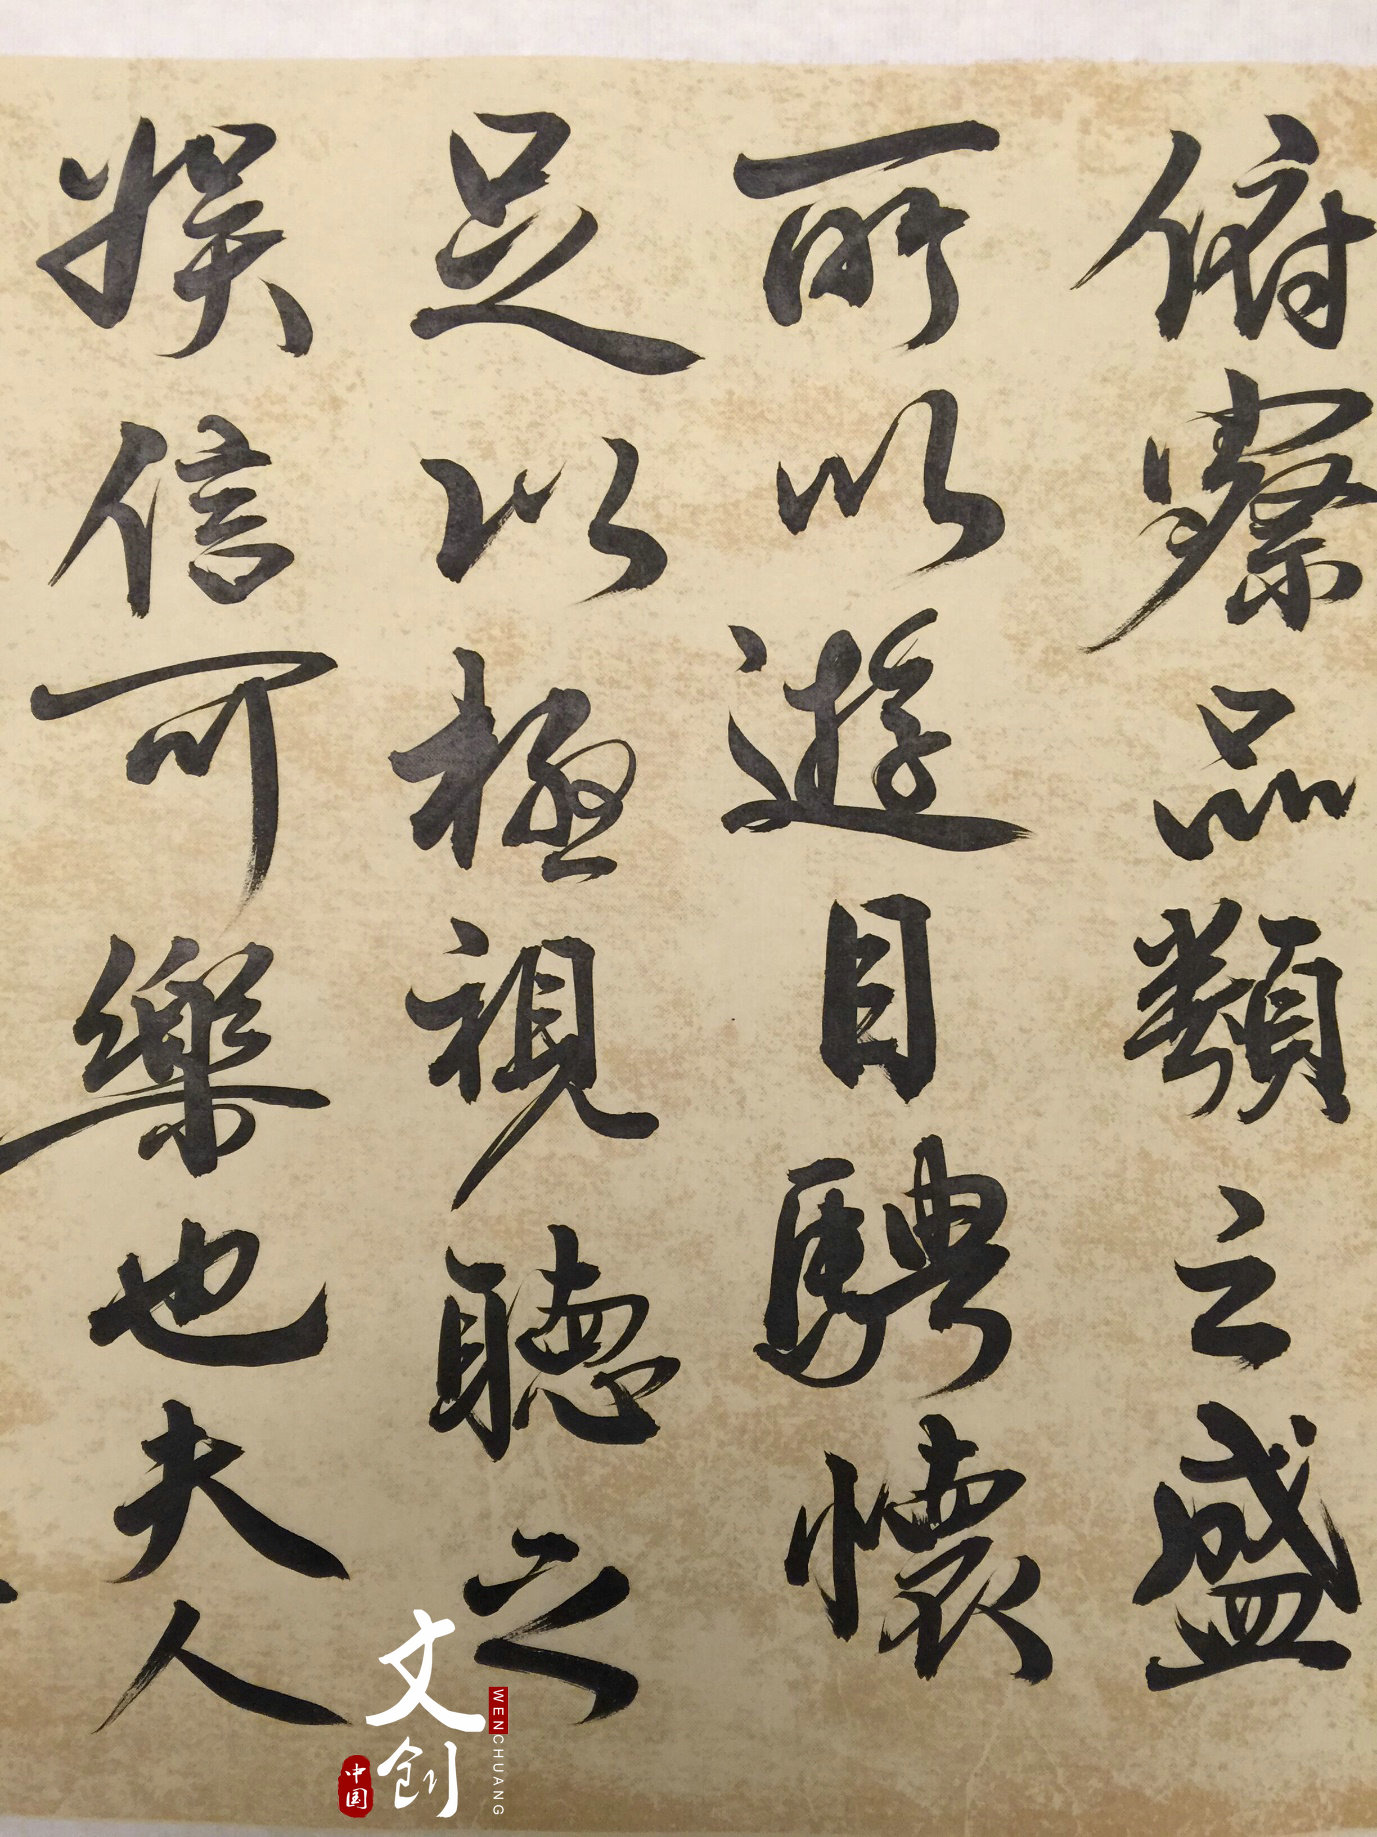 俯察品類之盛
所以遊目騁懷
足以極視聽之
娛信可樂也夫人
文创
WENCHUANG
中国